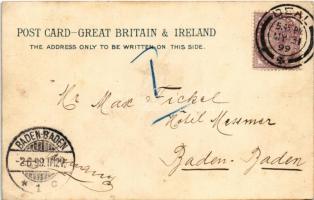 POST CARD—GREAT BRITAIN & IRELAND
THE ADDRESS ONLY TO BE WRITTEN ON THIS SIDE.
DEAL
99
Hr Max Fickel
Hôtel Messmer
Baden-Baden
BADEN-BADEN
-2.6.99.11-12V.
* 1 c